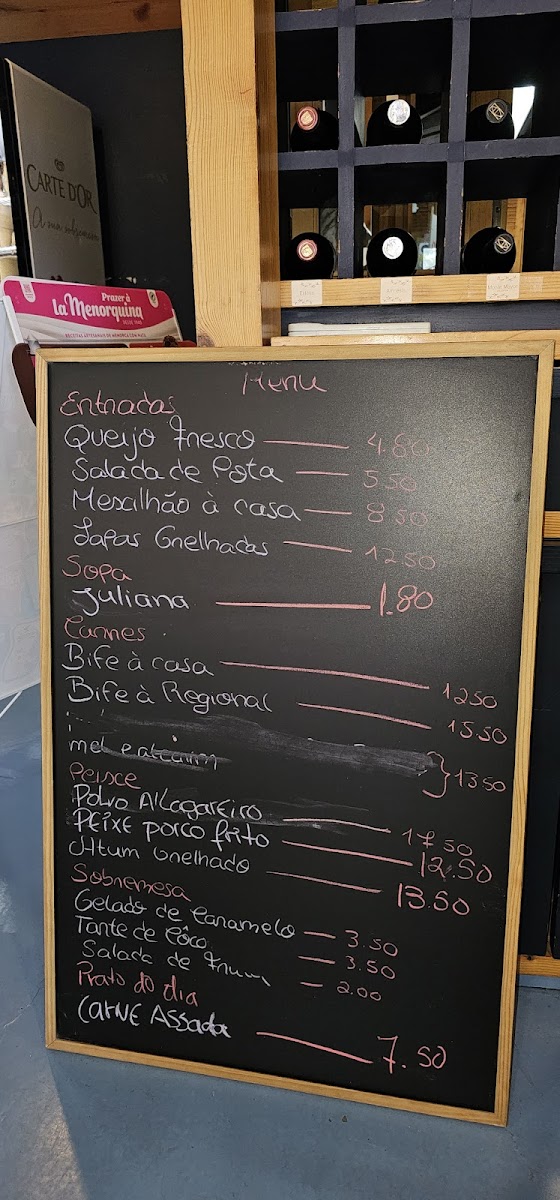 CARTE D'OR
A sua sobremesa
Prazer à
La Menorquina
Menu
Entradas
Queijo Fresco 4.80
Salada de Pota 5.50
Mexilhão à casa 8.50
Lapas Grelhadas 12.50
Sopa
Juliana 1.80
Carnes
Bife à casa 12.50
Bife à Regional 15.50
mel e alecrim } 13.50
Peixe
Polvo Al Lagareiro 17.50
PEIXE PORCO frito 12.50
Atum Grelhado 13.50
Sobremesa
Gelado de Caramelo 3.50
Tarte de Côco 3.50
Salada de Fruta 2.00
Prato do dia
CARNE ASSada 7.50